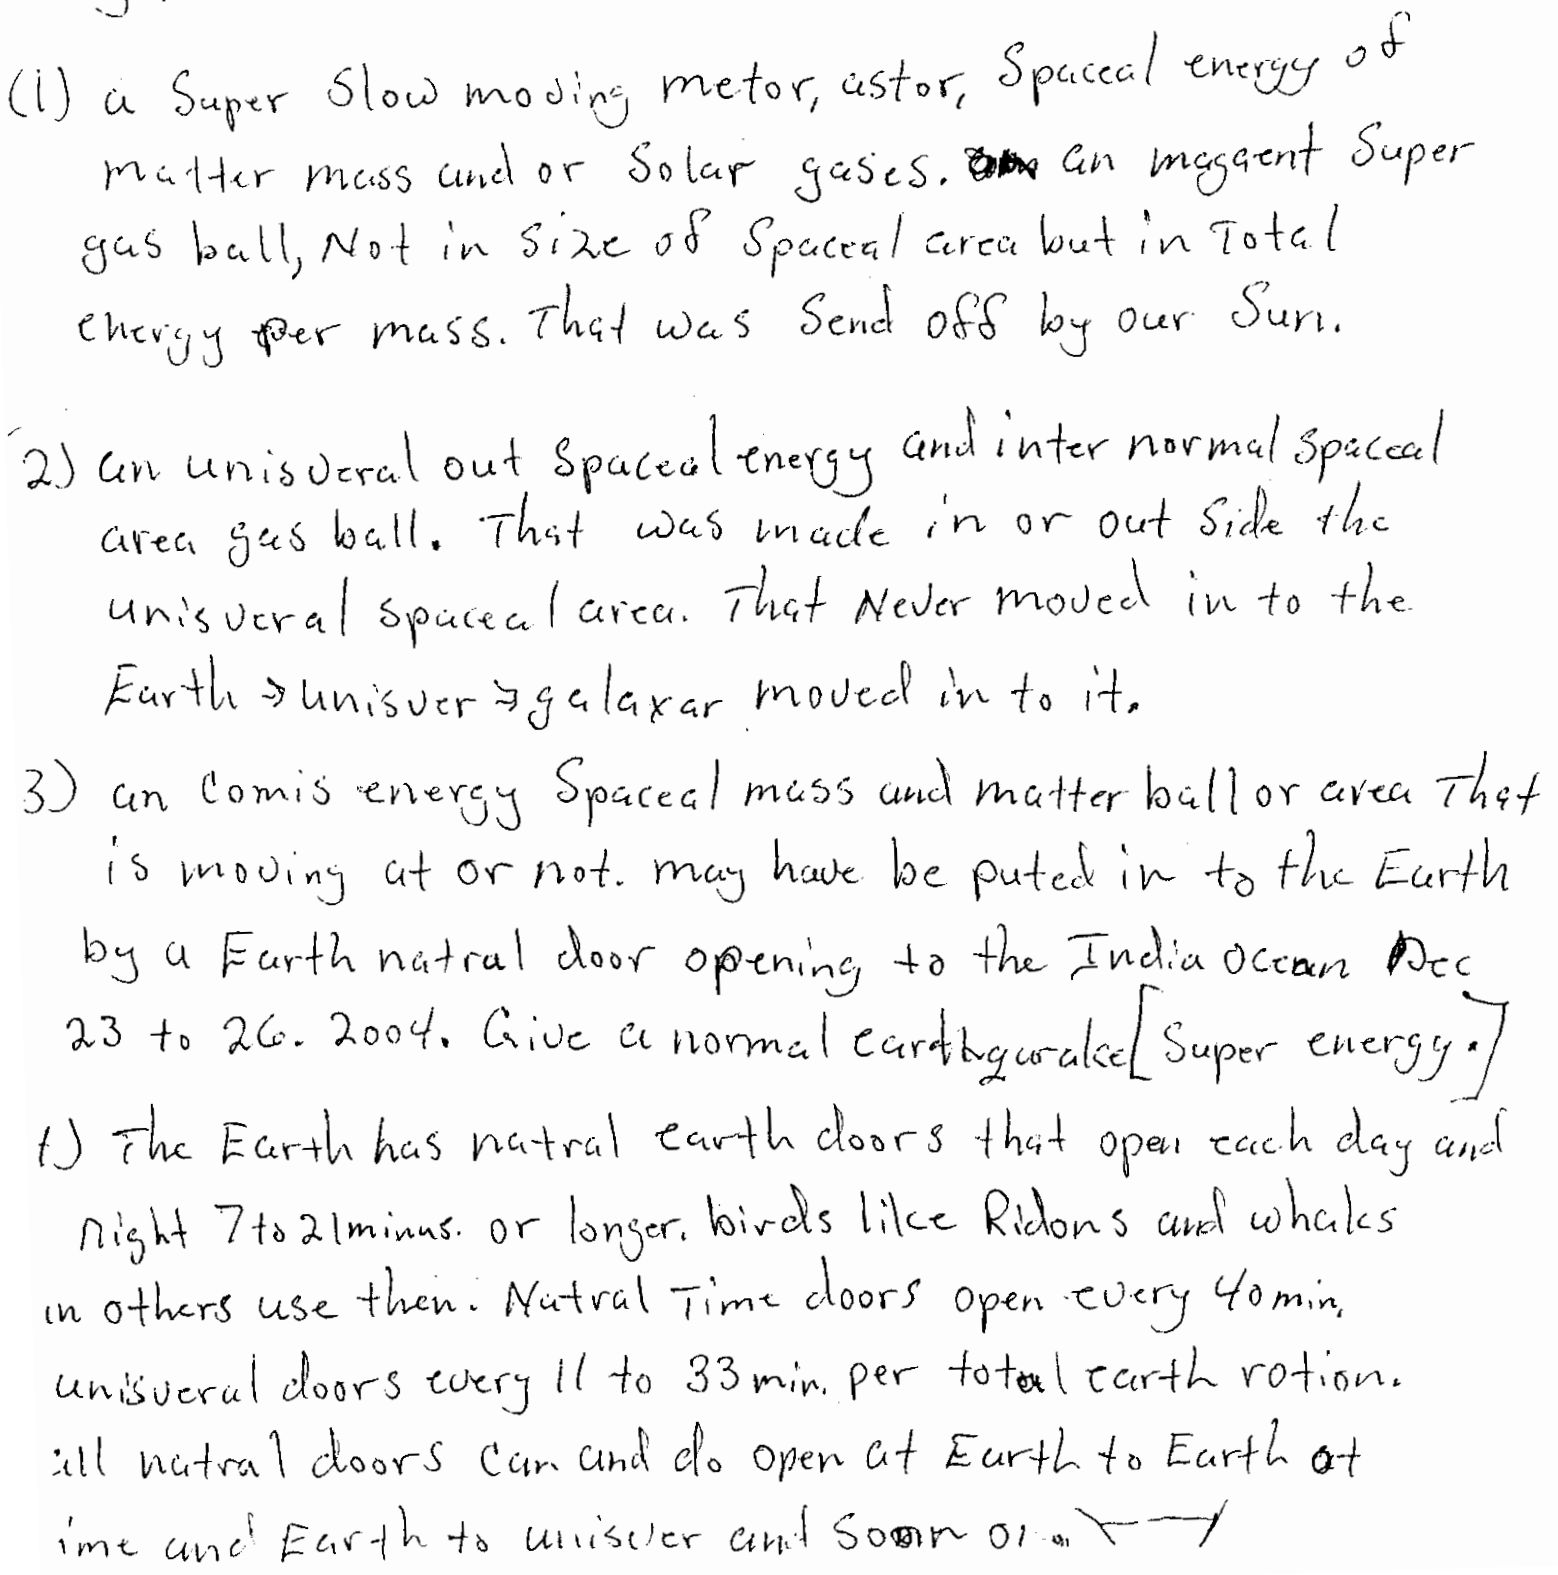 (1) a Super Slow moving metor, astor, Spaceal energy of
matter mass and or Solar gases. an magaent Super
gas ball, Not in Size of Spaceal area but in Total
energy per mass. That was Send off by our Sun.
2) an unisveral out Spaceal energy and inter normal spaceal
area gas ball. That was made in or out Side the
unisveral spaceal area. That Never moved in to the
Earth → unisver → galaxar moved in to it.
3) an Comis energy Spaceal mass and matter ball or area That
is moving at or not. may have be puted in to the Earth
by a Earth natral door opening to the India Ocean Dec
23 to 26. 2004. Give a normal earthqurake [Super energy.]
1.) The Earth has natral earth doors that open each day and
night 7 to 21 minus. or longer. birds like Ridons and whales
in others use then. Natral Time doors open every 40 min,
unisveral doors every 11 to 33 min. per total earth rotion.
all natral doors can and do open at Earth to Earth at
ime and Earth to unisver and Soon or